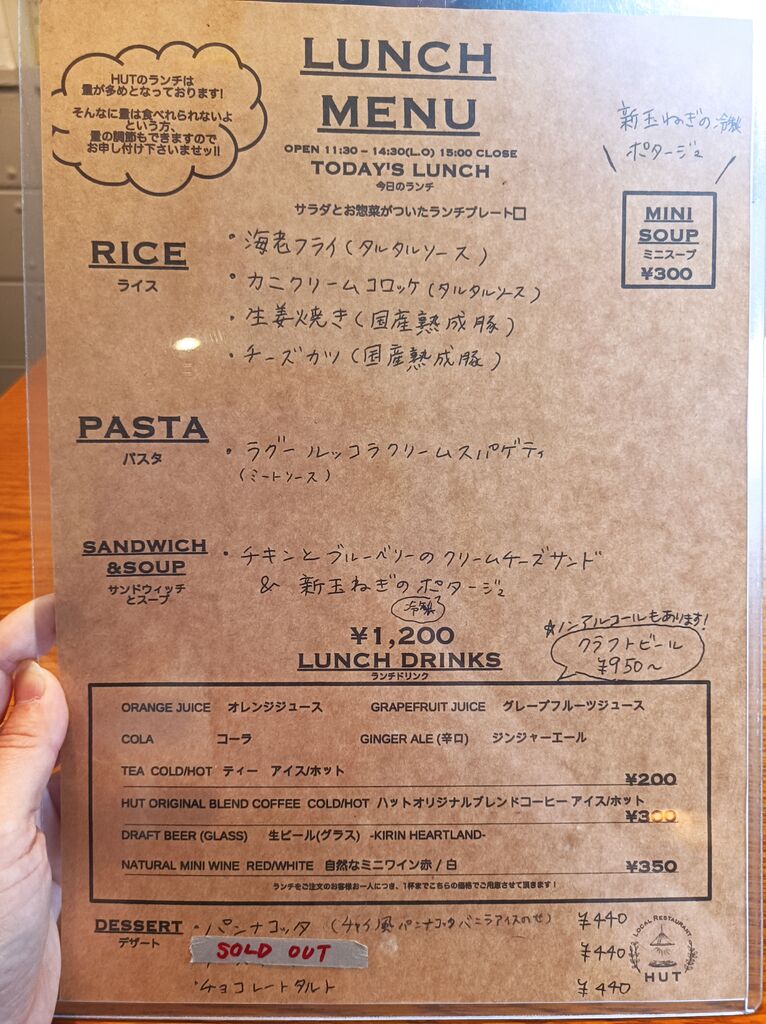 LUNCH
MENU
OPEN 11:30 – 14:30(L.O) 15:00 CLOSE
TODAY'S LUNCH
今日のランチ
HUTのランチは
量が多めとなっております!
そんなに量は食べれられないよ
という方、
量の調節もできますので
お申し付け下さいませッ!!
新玉ねぎの冷製
ポタージュ
MINI
SOUP
ミニスープ
¥300
サラダとお惣菜がついたランチプレート□
RICE
ライス
・海老フライ(タルタルソース)
・カニクリームコロッケ(タルタルソース)
・生姜焼き(国産熟成豚)
・チーズカツ(国産熟成豚)
PASTA
パスタ
・ラグー ルッコラクリームスパゲティ
(ミートソース)
SANDWICH
&SOUP
サンドウィッチ
とスープ
・チキンとブルーベリーのクリームチーズサンド
& 新玉ねぎのポタージュ
冷製
¥1,200
☆ノンアルコールもあります!
クラフトビール
¥950〜
LUNCH DRINKS
ランチドリンク
ORANGE JUICE オレンジジュース GRAPEFRUIT JUICE グレープフルーツジュース
COLA コーラ GINGER ALE (辛口) ジンジャーエール
TEA COLD/HOT ティー アイス/ホット
¥200
HUT ORIGINAL BLEND COFFEE COLD/HOT ハットオリジナルブレンドコーヒー アイス/ホット
¥300
DRAFT BEER (GLASS) 生ビール(グラス) -KIRIN HEARTLAND-
NATURAL MINI WINE RED/WHITE 自然なミニワイン赤 / 白 ¥350
ランチをご注文のお客様お一人につき、1杯までこちらの価格でご用意させて頂きます!
DESSERT
デザート
・パンナコッタ (チャイ風パンナコッタバニラアイスのせ) ¥440
SOLD OUT ¥440
・チョコレートタルト ¥440
LOCAL RESTAURANT
HUT